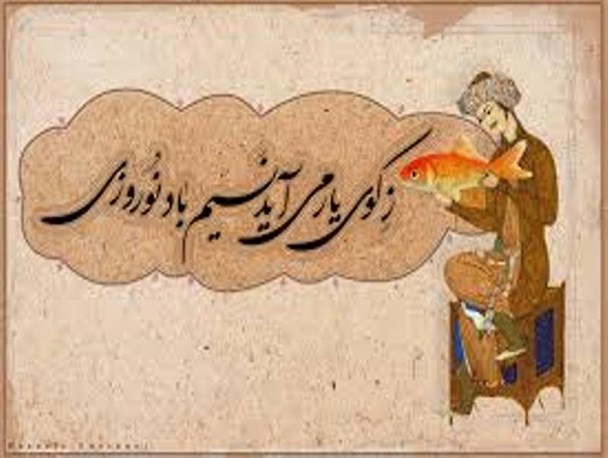 ز کوی یار می آید نسیم باد نوروزی